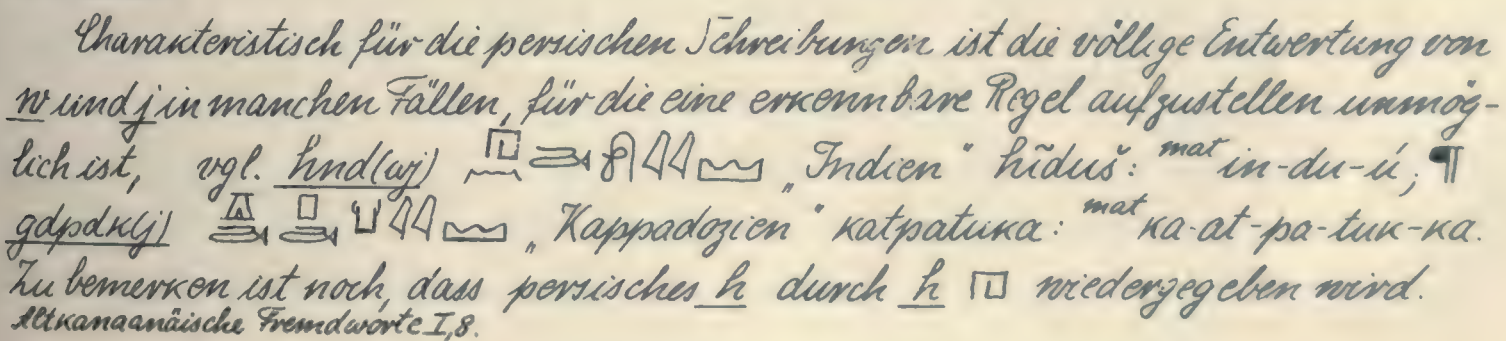 Charakteristisch für die persischen Schreibungen ist die völlige Entwertung von
w und j in manchen Fällen, für die eine erkennbare Regel aufzustellen unmög-
lich ist, vgl. hnd(wj) 𓉔𓈖𓂧𓍯𓇋𓇋𓈉 „Indien“ hĩduš: ᵐᵃᵗ in-du-ú; ¶
gdpdk(j) 𓎼𓂧𓊪𓂧𓂓𓇋𓇋𓈉 „Kappadozien“ katpatuka: ᵐᵃᵗ ka-at-pa-tuk-ka.
Zu bemerken ist noch, dass persisches h durch h 𓉔 wiedergegeben wird.
Altkanaanäische Fremdworte I,8.